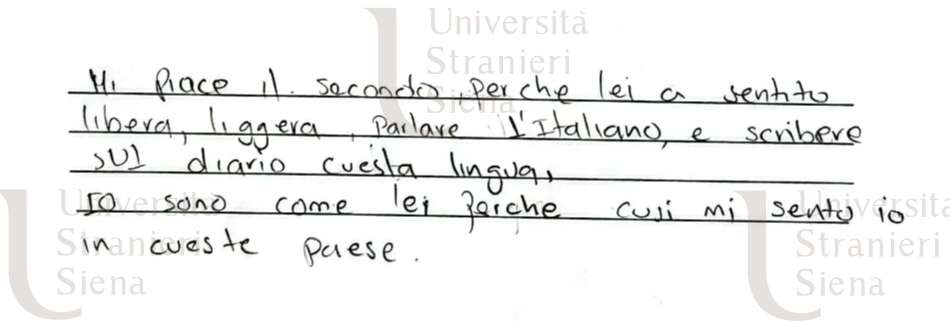 Università
Stranieri
Siena
Mi piace il secondo, perche lei a sentito
libera, liggera, parlare l'Italiano, e scribere
sul diario cuesta lingua,
Io sono come lei perche cusi mi sento io
in cueste paese.
Università
Stranieri
Siena
Università
Stranieri
Siena